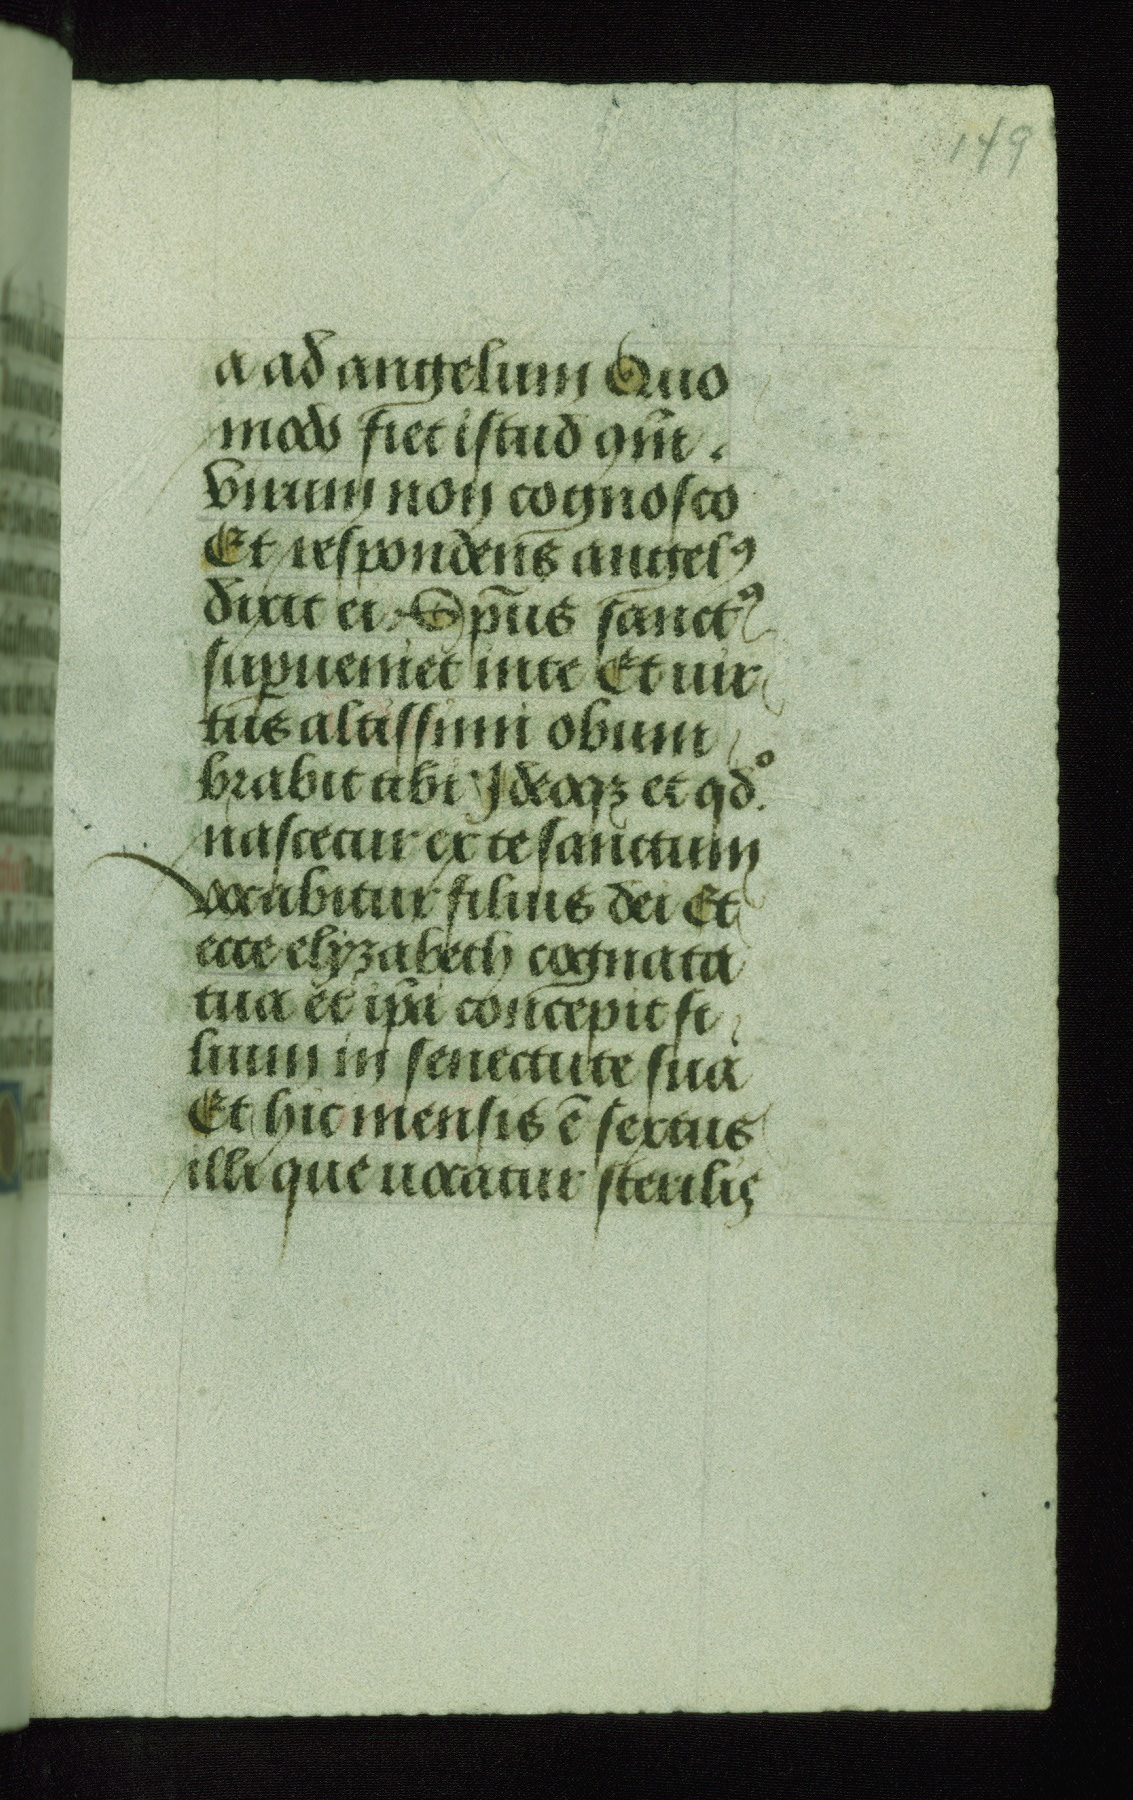 149
a ad angelum Quo
modo fiet istud qm̄
virum non cognosco
Et respondens angelꝰ
dixit ei Sp̄us sanctꝰ
suꝑueniet in te Et uir
tus altissimi obum
brabit tibi Ideoqꝫ et qdº
nascetur ex te sanctum
vocabitur filius dei Et
ecce elyzabeth cognata
tua et ip̄a concepit fi
lium in senectute sua
Et hic mensis ē sextus
illi que uocatur sterilis